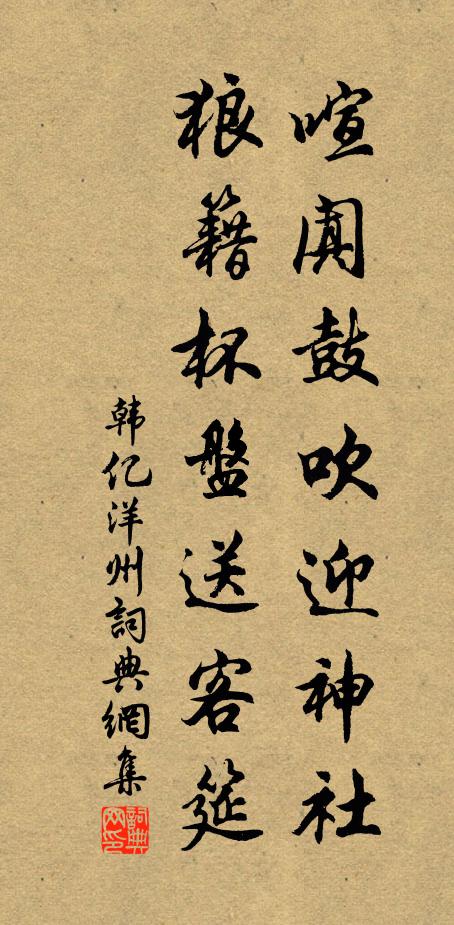 喧阗鼓吹迎神社
狼籍杯盤送客筵
韩亿洋州詞典網集
詞典网印